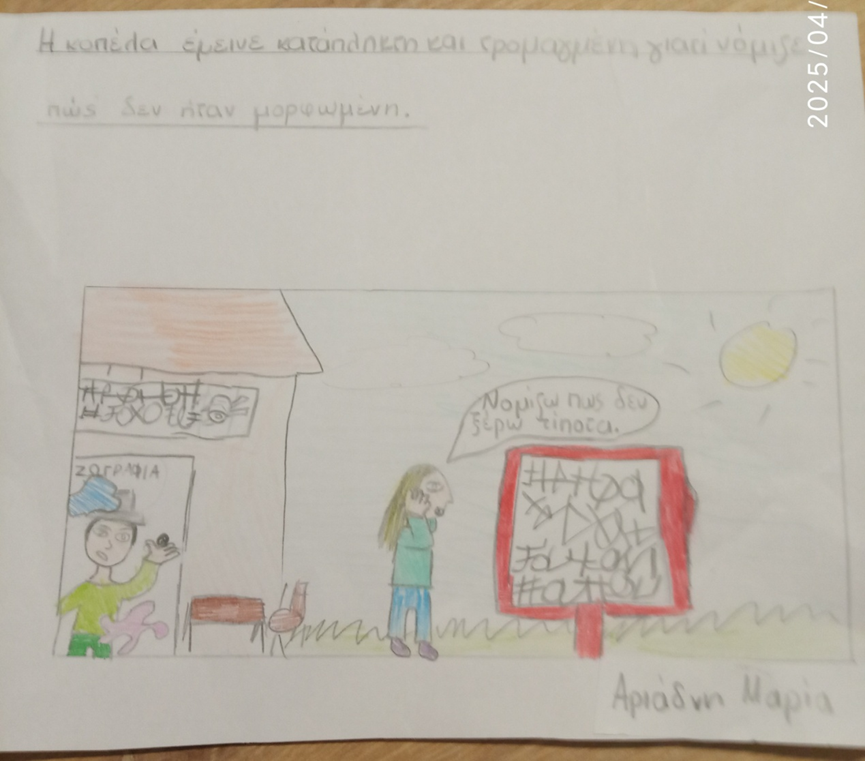 Η κοπέλα έμεινε κατάπληκτη και τρομαγμένη γιατί νόμιζε
πώς δεν ήταν μορφωμένη.
2025/04/
Νομίζω πως δεν
ξέρω τίποτα.
ΖΩΓΡΑΦΙΑ
Αριάδνη Μαρία